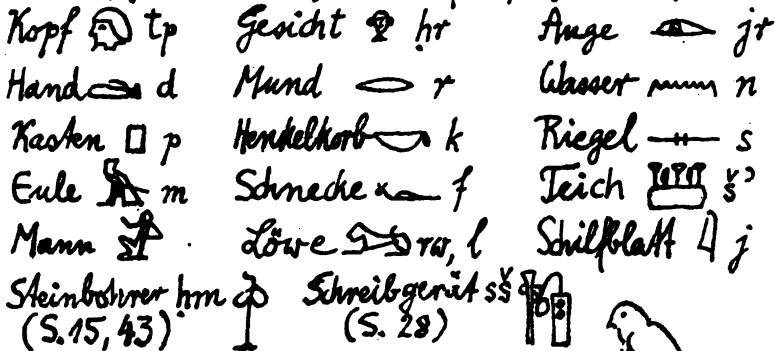 Kopf tp Gesicht ḥr Auge jr
Hand d Mund r Wasser n
Kasten p Henkelkorb k Riegel s
Eule m Schnecke f Teich šꜣ
Mann Löwe rw, l Schilfblatt j
Steinbohrer ḥm Schreibgerät sš
(S.15, 43) (S. 28)